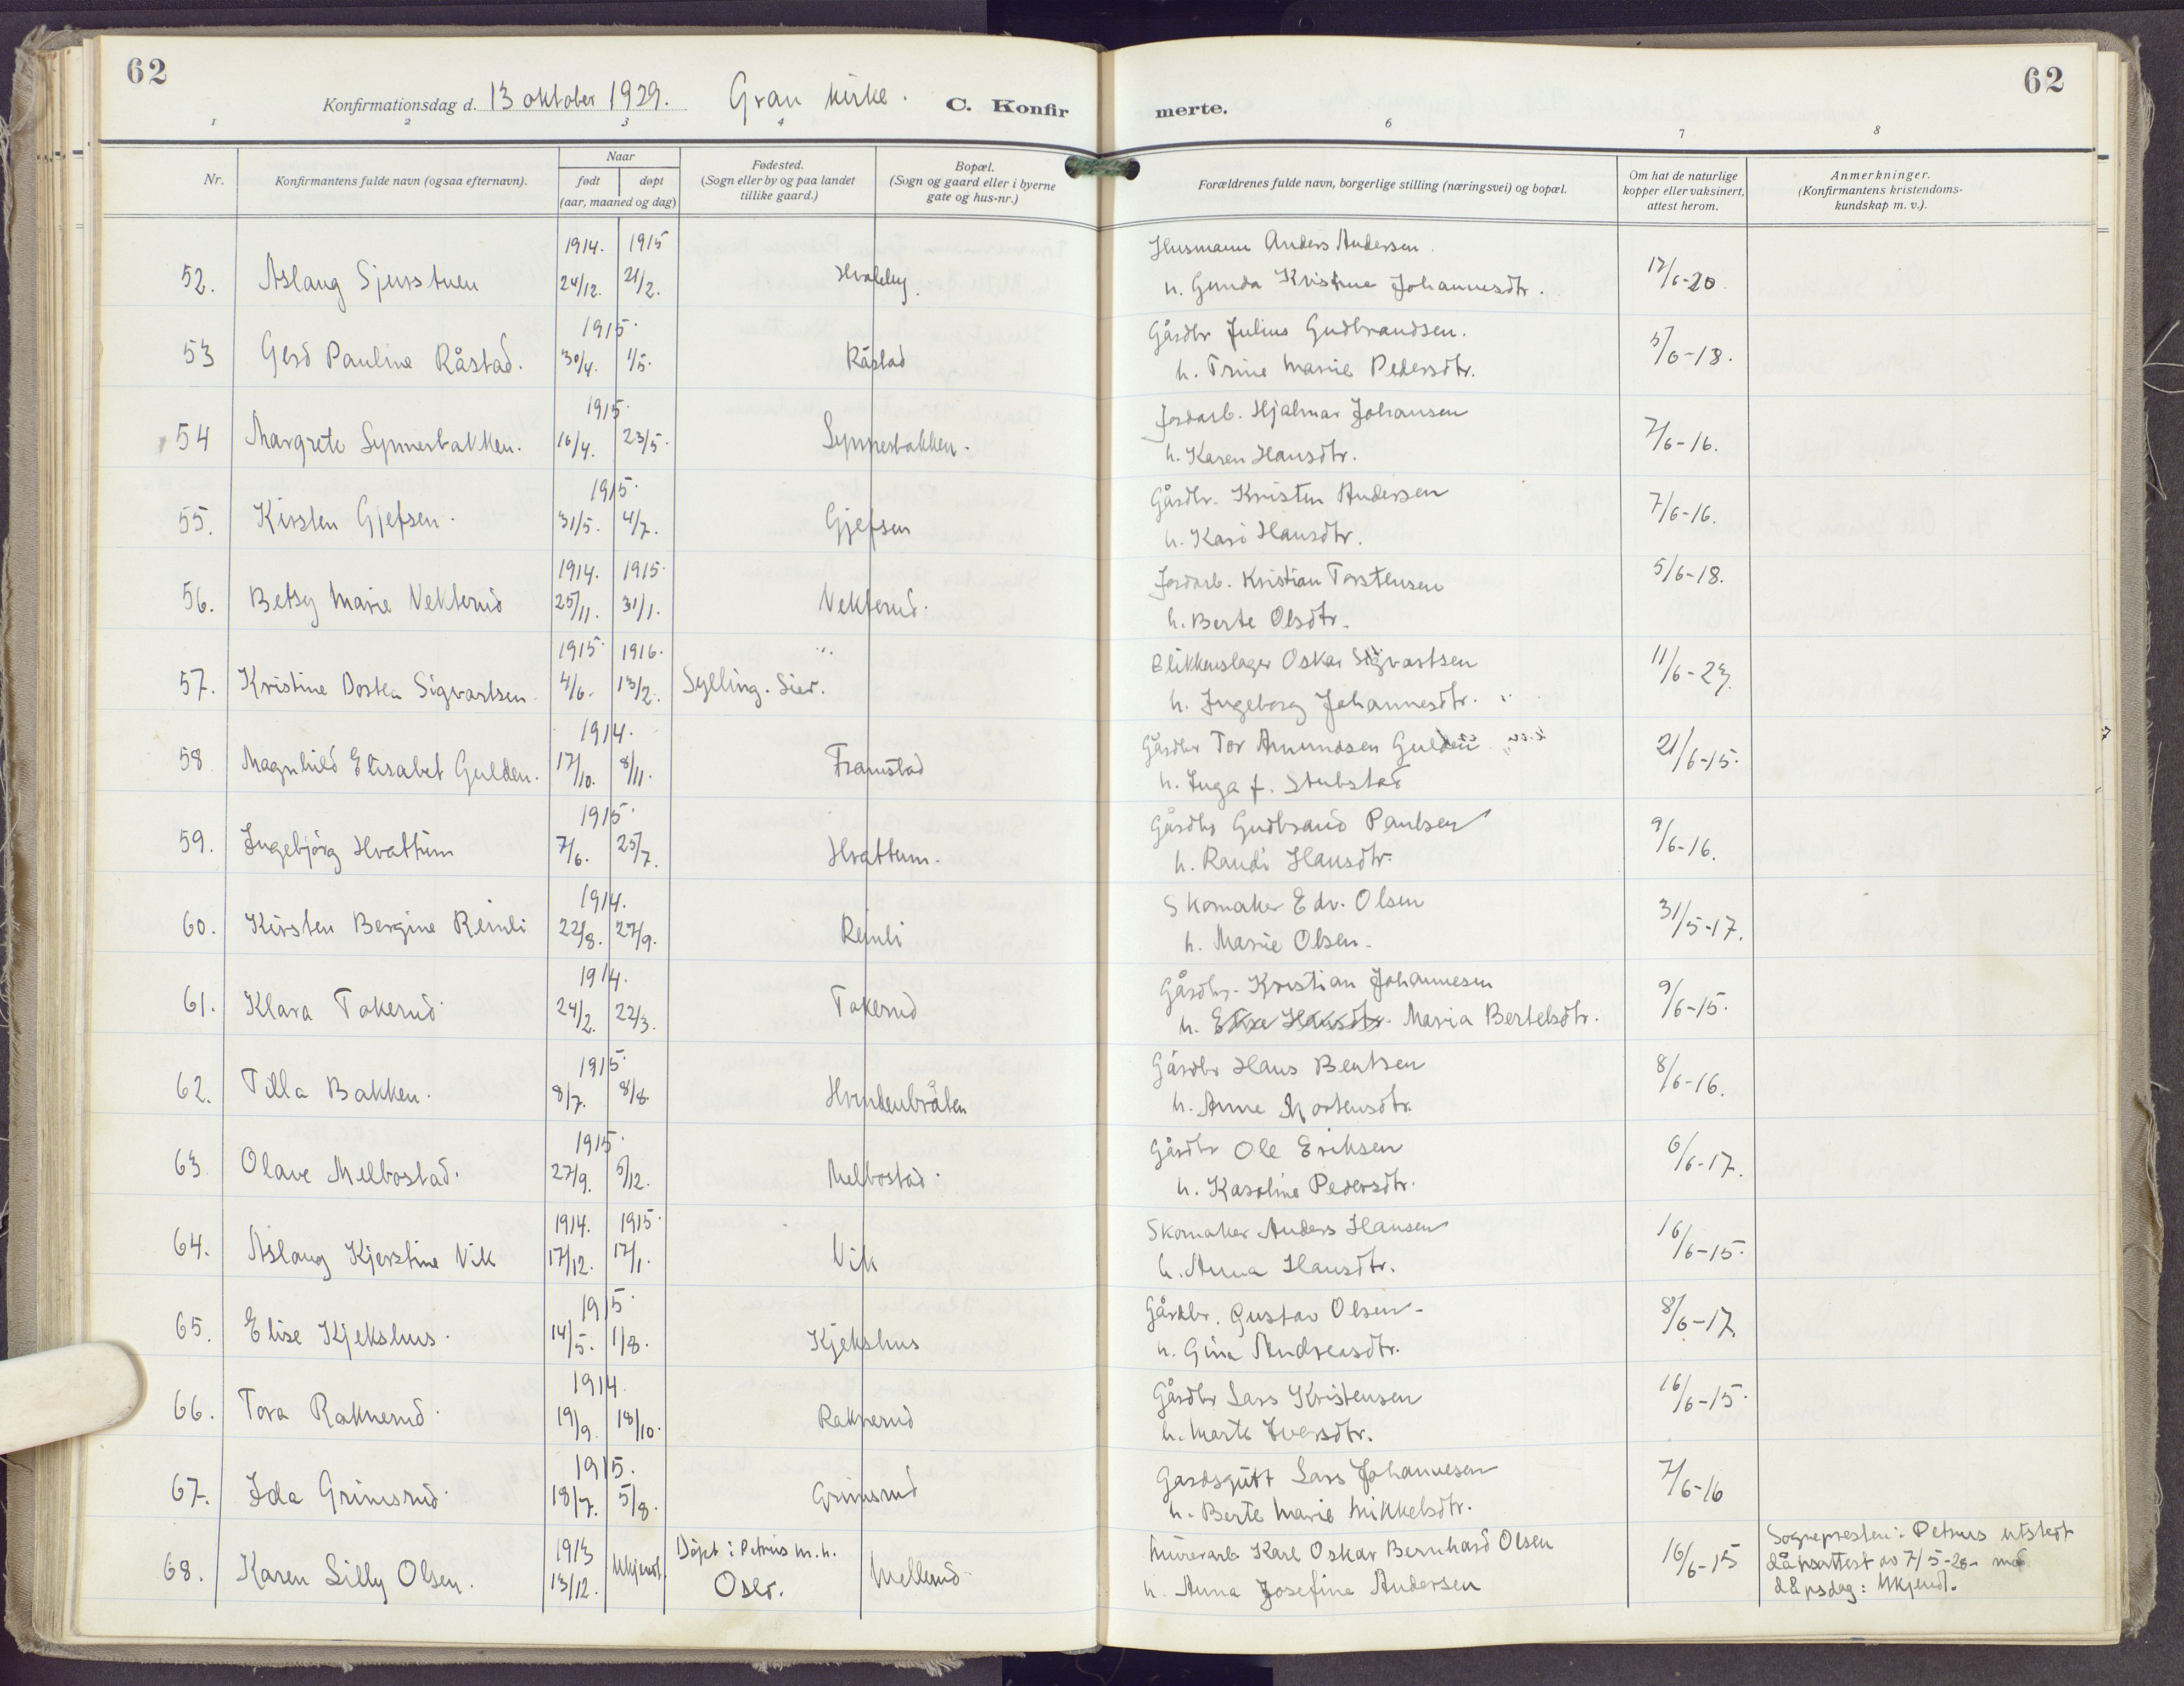 62
Konfirmationsdag d. 13 oktober 1929. Gran kirke. C. Konfir
1 2 3 4
Nr.
Konfirmantens fulde navn (ogsaa efternavn).
Naar
født døpt
(aar, maaned og dag)
Fødested.
(Sogn eller by og paa landet
tillike gaard.)
Bopæl.
(Sogn og gaard eller i byerne
gate og hus-nr.)
1914. 1915
52. Aslaug Sjursstuen 24/12. 21/2. Hvaleby.
1915.
53 Gerd Pauline Råstad. 30/4. 1/5. Råstad
1915.
54 Margrete Synnesbakken. 16/4. 23/5. Synnesbakken.
1915.
55. Kirsten Gjefsen. 31/5. 4/7. Gjefsen
1914. 1915.
56. Betsy Marie Nekterud 25/11. 31/1. Nekterud.
1915. 1916.
57. Kristine Dortea Sigvartsen. 4/6. 13/2. Sylling. Lier.
1914.
58 Magnhild Elisabet Gulden. 17/10. 8/11. Framstad
1915.
59. Ingebjörg Hvattum 7/6. 25/7. Hvattum.
1914.
60. Kirsten Bergine Reinli 22/8. 27/9. Reinli
1914.
61. Klara Takerud 24/2. 22/3. Takerud
1915.
62. Tilla Bakken. 8/7. 8/8. Hvindenbråten
1915.
63. Olave Melbostad. 27/9. 5/12. Melbostad.
1914. 1915.
64. Aslaug Kjerstine Vik 17/12. 17/1. Vik
1915.
65. Elise Kjekshus. 14/5. 1/8. Kjekshus
1914.
66. Tora Raknerud. 19/9. 18/10. Raknerud
1915.
67. Ida Grimsrud. 18/7. 5/8. Grimsrud
1913 Döpt i Petrus m.h.
68. Karen Lilly Olsen. 13/12. Ukjendt. Oslo. Mellerud
62
merte.
6 7 8
Forældrenes fulde navn, borgerlige stilling (næringsvei) og bopæl.
Om hat de naturlige
kopper eller vaksinert,
attest herom.
Anmerkninger.
(Konfirmantens kristendoms-
kundskap m. v.).
Husmann Anders Andersen.
h. Gunda Kristine Johannesdtr. 17/6-20.
Gårdbr Julius Gudbrandsen.
h. Trine Marie Pedersdtr. 5/6-18.
Jordarb. Hjalmar Johansen
h. Karen Hansdtr. 7/6-16.
Gårdbr. Kristen Andersen
h. Kari Hansdtr. 7/6-16.
Jordarb. Kristian Torstensen 5/6-18.
h. Berte Olsdtr.
Blikkenslager Oskar Sigvartsen
h. Ingeborg Johannesdtr. 11/6-23.
Gårdbr Tor Amundsen Gulden
h. Inga f. Stubstad 21/6-15.
Gårdbr Gudbrand Paulsen
h. Randi Hansdtr. 9/6-16.
Skomaker Edv. Olsen
h. Marie Olsen. 31/5-17.
Gårdbr. Kristian Johannesen
h. Maria Bertelsdtr. 9/6-15.
Gårdbr Hans Bentsen
h. Anne Mortensdtr. 8/6-16.
Gårdbr Ole Eriksen
h. Karoline Pedersdtr. 6/6-17.
Skomaker Anders Hansen
h. Anna Hansdtr. 16/6-15.
Gårdbr. Gustav Olsen.
h. Gina Andreasdtr. 8/6-17.
Gårdbr Lars Kristensen
h. Marte Iversdtr. 16/6-15.
Gardsgutt Lars Johannesen
h. Berte Marie Mikkelsdtr. 7/6-16
Murerarb. Karl Oskar Bernhard Olsen
h. Anna Josefine Andersen 16/6-15
Sognepresten i Petrus utstedt
dåpsattest av 7/5-20- med
dåpsdag: Ukjendt.